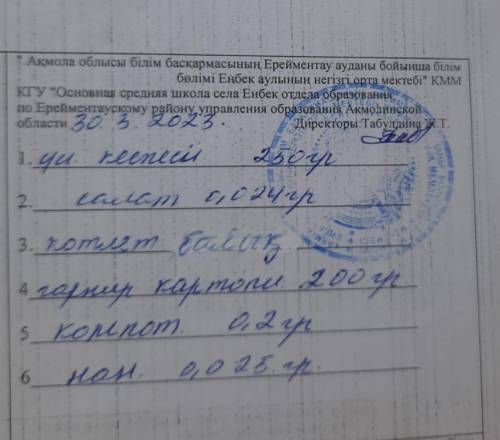 " Ақмола облысы білім басқармасының Ерейментау ауданы бойынша білім
бөлімі Еңбек аулының негізгі орта мектебі" КММ
КГУ "Основная средняя школа села Енбек отдела образования
по Ерейментаускому району управления образования Акмолинской
области 30.3.2023. Директоры:Табулдина Ж.Т.
1. үй кеспесі 250гр
2. салат 0,024гр
3. котлет балық.
4 гарнир картопи 200гр
5 компот. 0.2гр
6 нан. 0,025 гр.